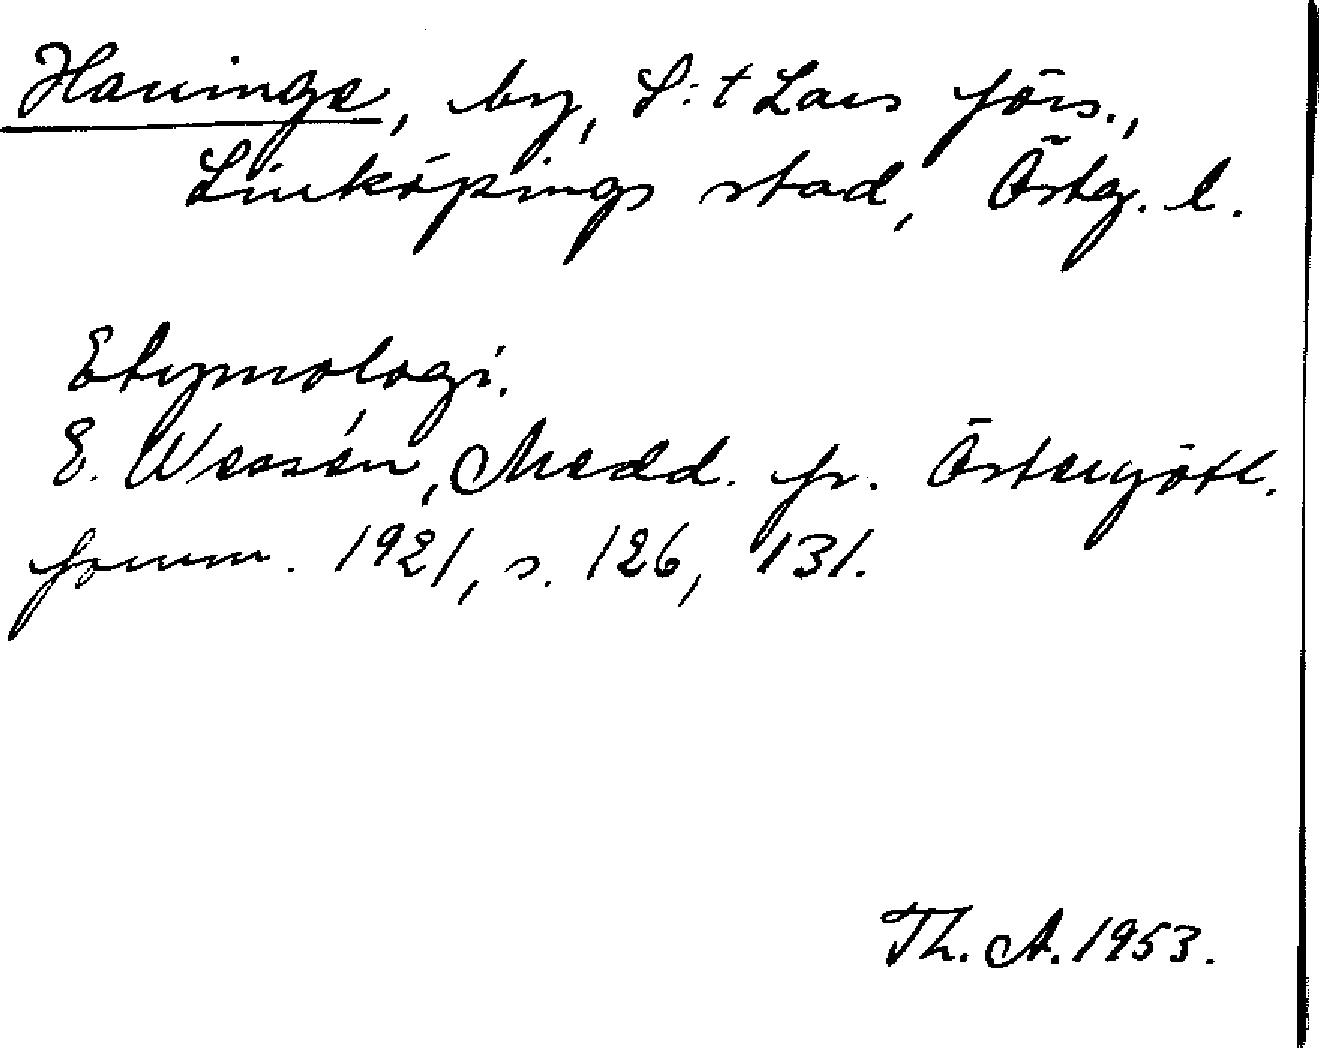 Harvinge, by, S:t Lars förs.,
Linköpings stad, Östg. l.
Etymologi.
E. Wessén, Medd. fr. Östergötl.
fornm. 1921, s. 126, 131.
Th. A. 1953.